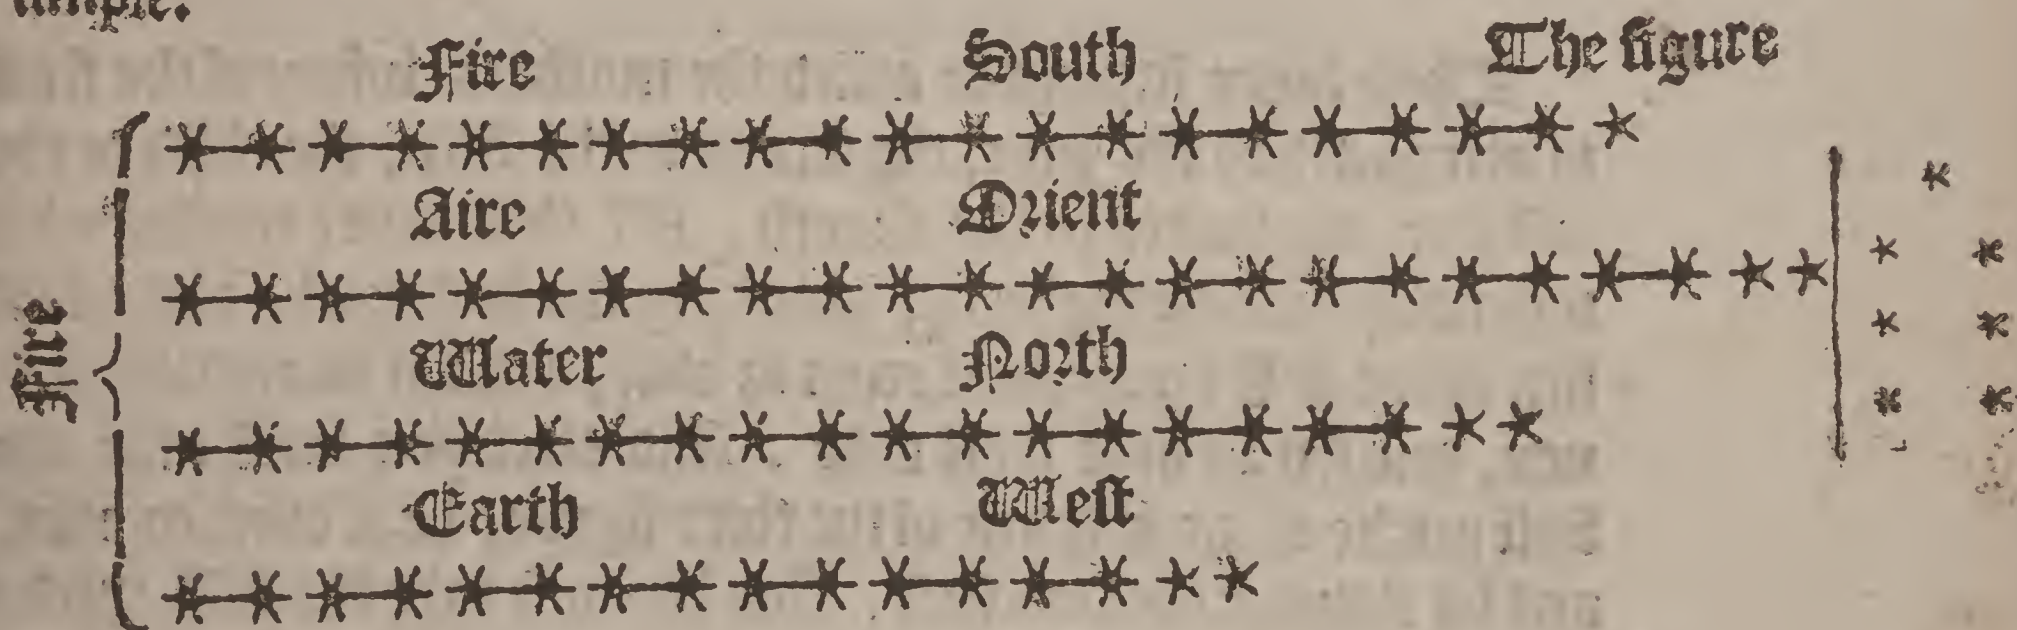 Fire South The figure
Aire Orient
Fire
Water North
Earth Weſt